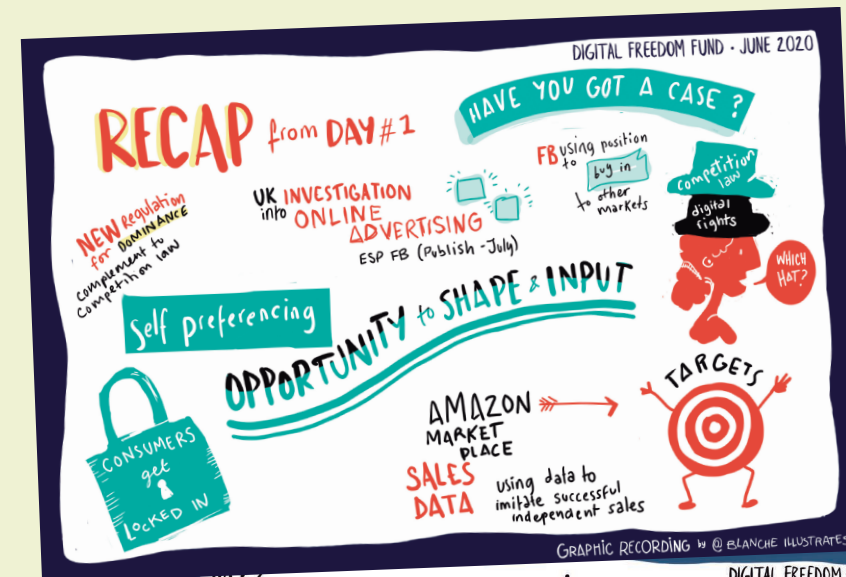 DIGITAL FREEDOM FUND · JUNE 2020
RECAP from DAY #1
HAVE YOU GOT A CASE?
NEW Regulation
for DOMINANCE
complement to
Competition law
UK INVESTIGATION
into ONLINE
ADVERTISING
ESP FB (Publish - July)
FB using position
to buy in
to other
markets
competition
law
digital
rights
WHICH
HAT?
Self preferencing
OPPORTUNITY to SHAPE & INPUT
CONSUMERS
get
LOCKED IN
AMAZON
MARKET
PLACE
SALES
DATA
using data to
imitate successful
independent sales
TARGETS
GRAPHIC RECORDING by @ BLANCHE ILLUSTRATES
DIGITAL FREEDOM